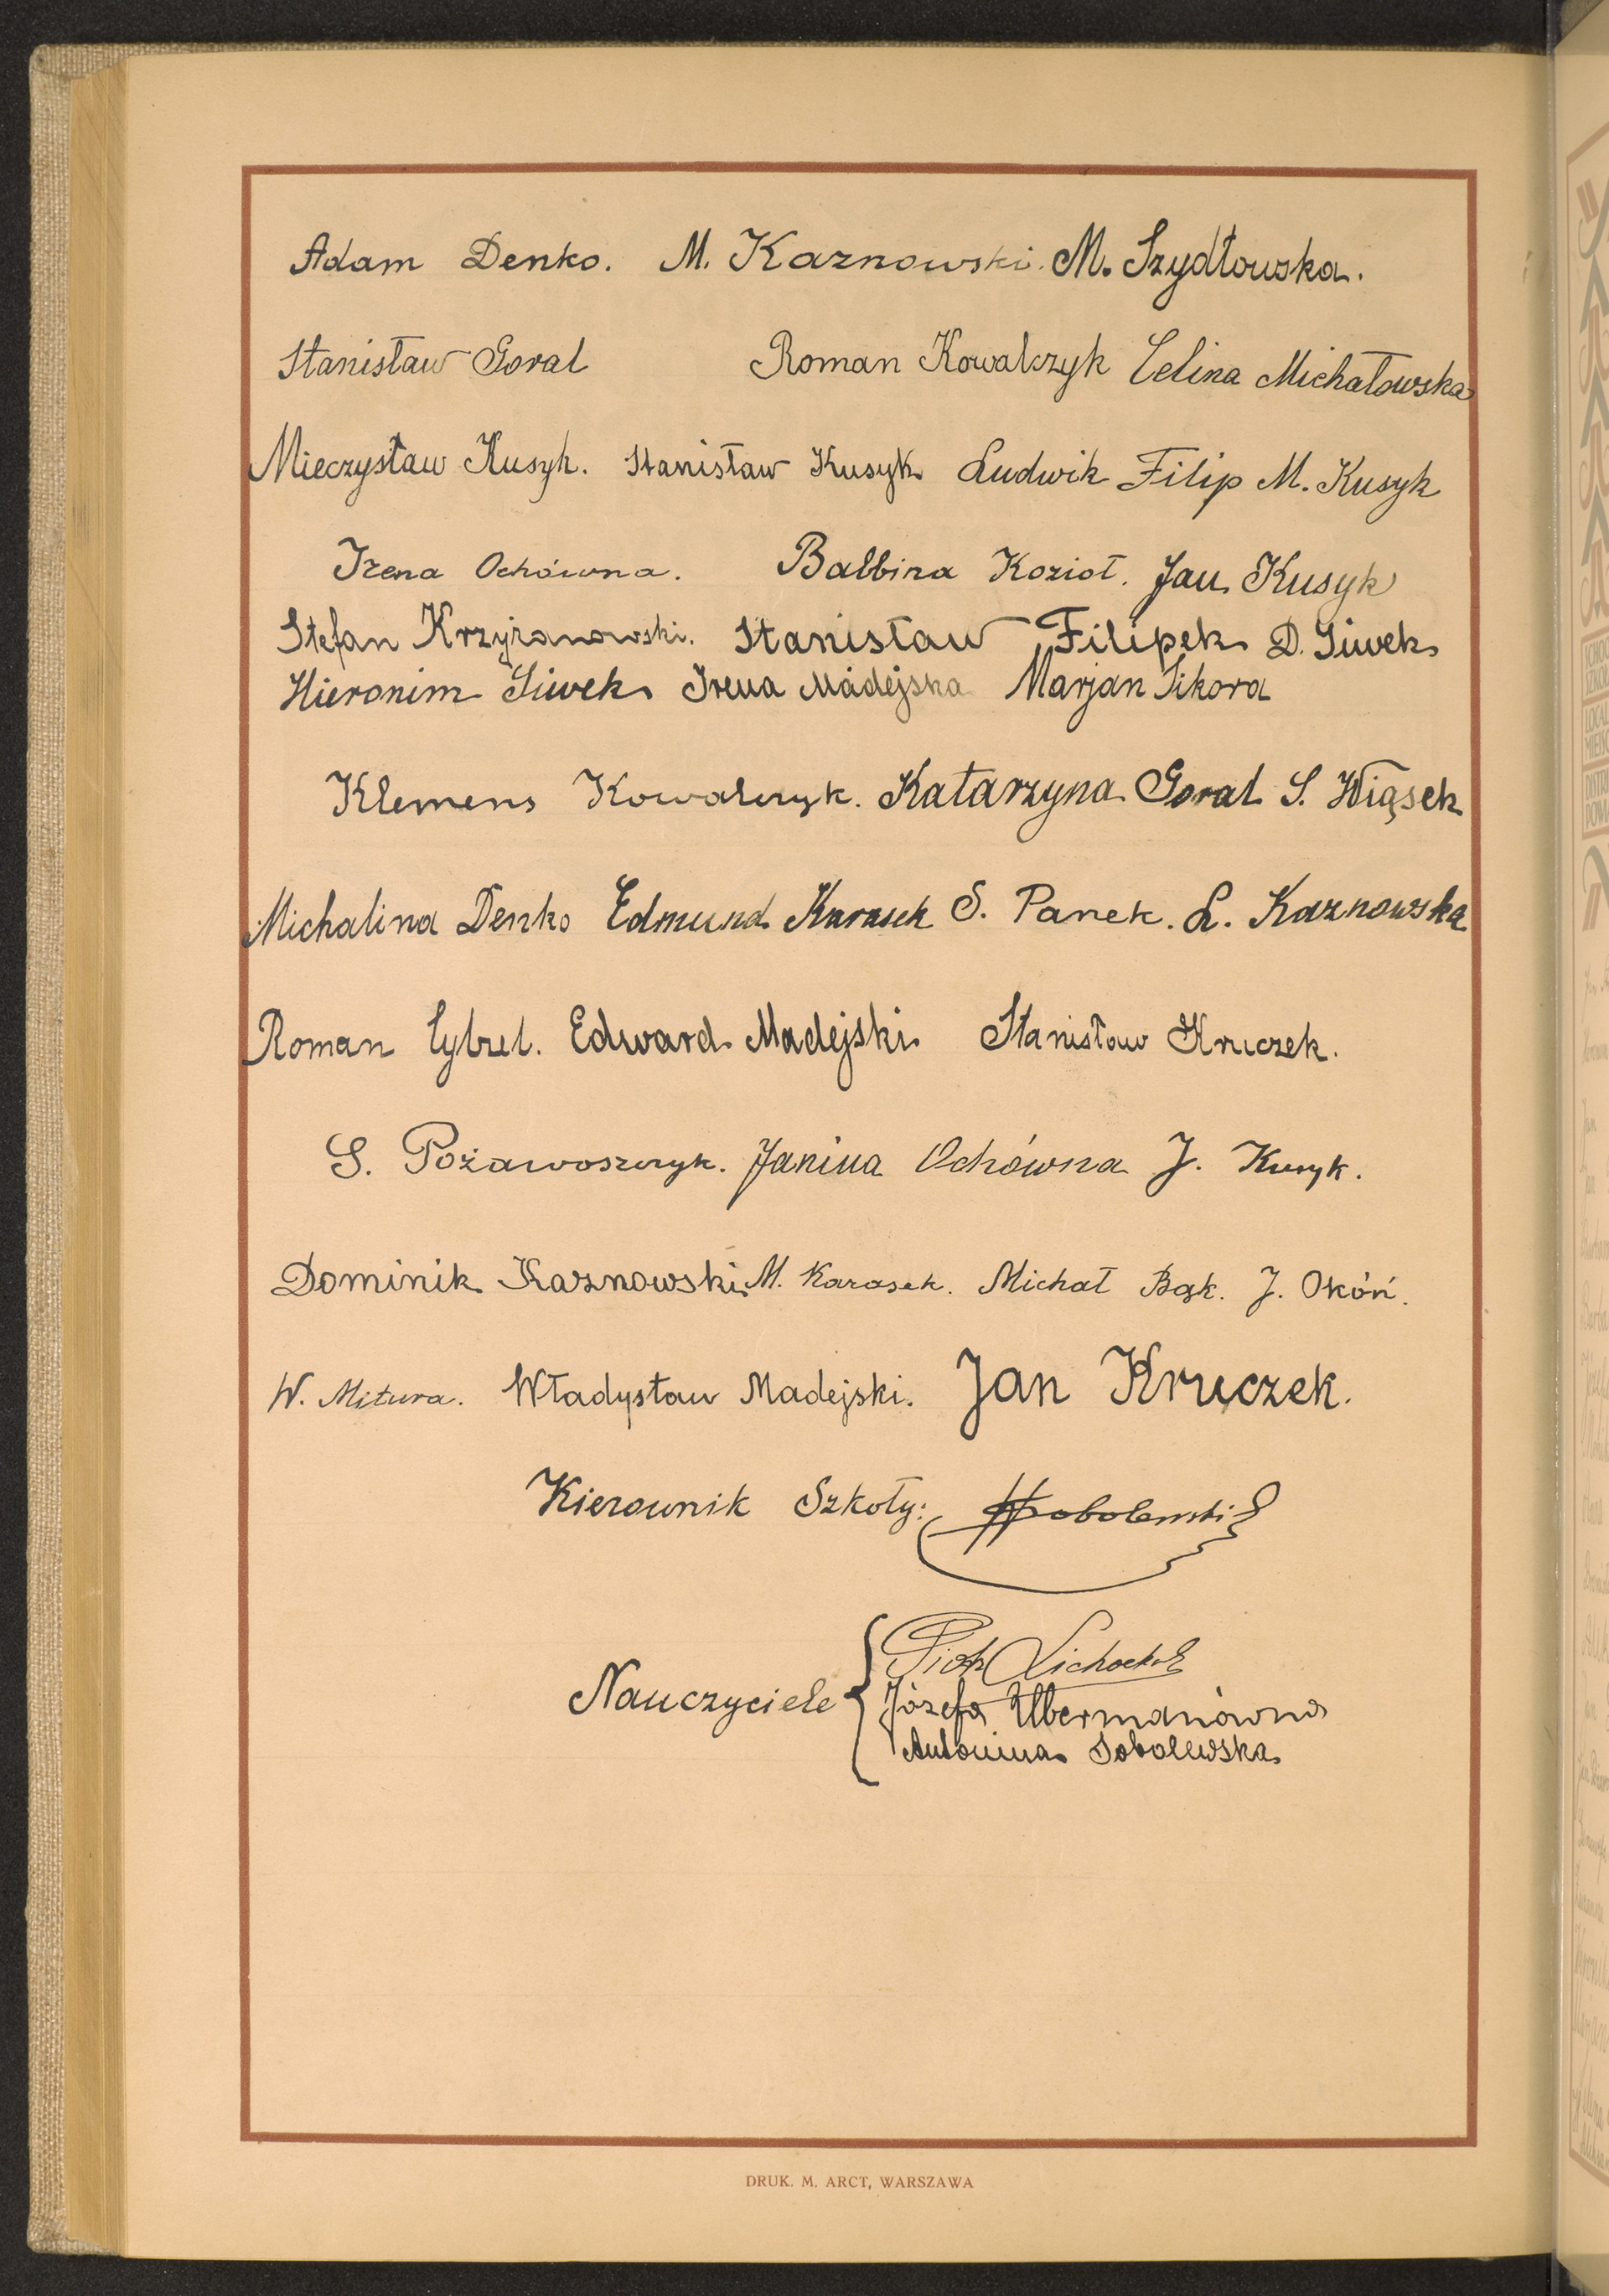 Adam Denko. M. Kaznowski. M. Szydłowska.
Stanisław Goral Roman Kowalczyk Celina Michałowska
Mieczysław Kusyk. Stanisław Kusyk Ludwik Filip M. Kusyk
Irena Ochówna. Balbina Kozioł. Jan Kusyk
Stefan Krzyżanowski. Stanisław Filipek D. Siwek
Hieronim Siwek Irena Madejska Marjan Sikora
Klemens Kowalczyk. Katarzyna Goral S. Wiąsek
Michalina Denko Edmund Karasek S. Panek. L. Kaznowska
Roman Cybul. Edward Madejski Stanisław Kruczek.
S. Pożawoszczyk. Janina Ochówna J. Kusyk.
Dominik Kaznowski M. Karasek. Michał Bąk. J. Okóń.
W. Mitura. Władysław Madejski. Jan Kruczek.
Kierownik Szkoły: Sobolewski
Nauczyciele
Piotr Lichocki
Józefa Ubermanówna
Antonina Sobolewska
DRUK. M. ARCT, WARSZAWA